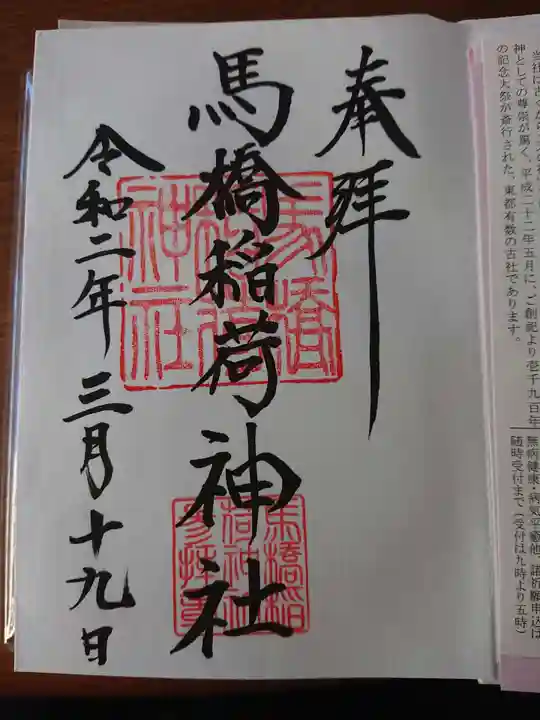 神としての尊崇が篤く、平成二十二年五月に、ご創祀より壱千九百年
の記念大祭が斎行された、東都有数の古社であります。
無病健康・病気平癒他、諸祈願申込は
随時受付まで(受付は九時より五時)
奉拝
馬橋稲荷神社
令和二年三月十九日
馬橋
稲荷
神社
馬橋稲
荷神社
参拝章